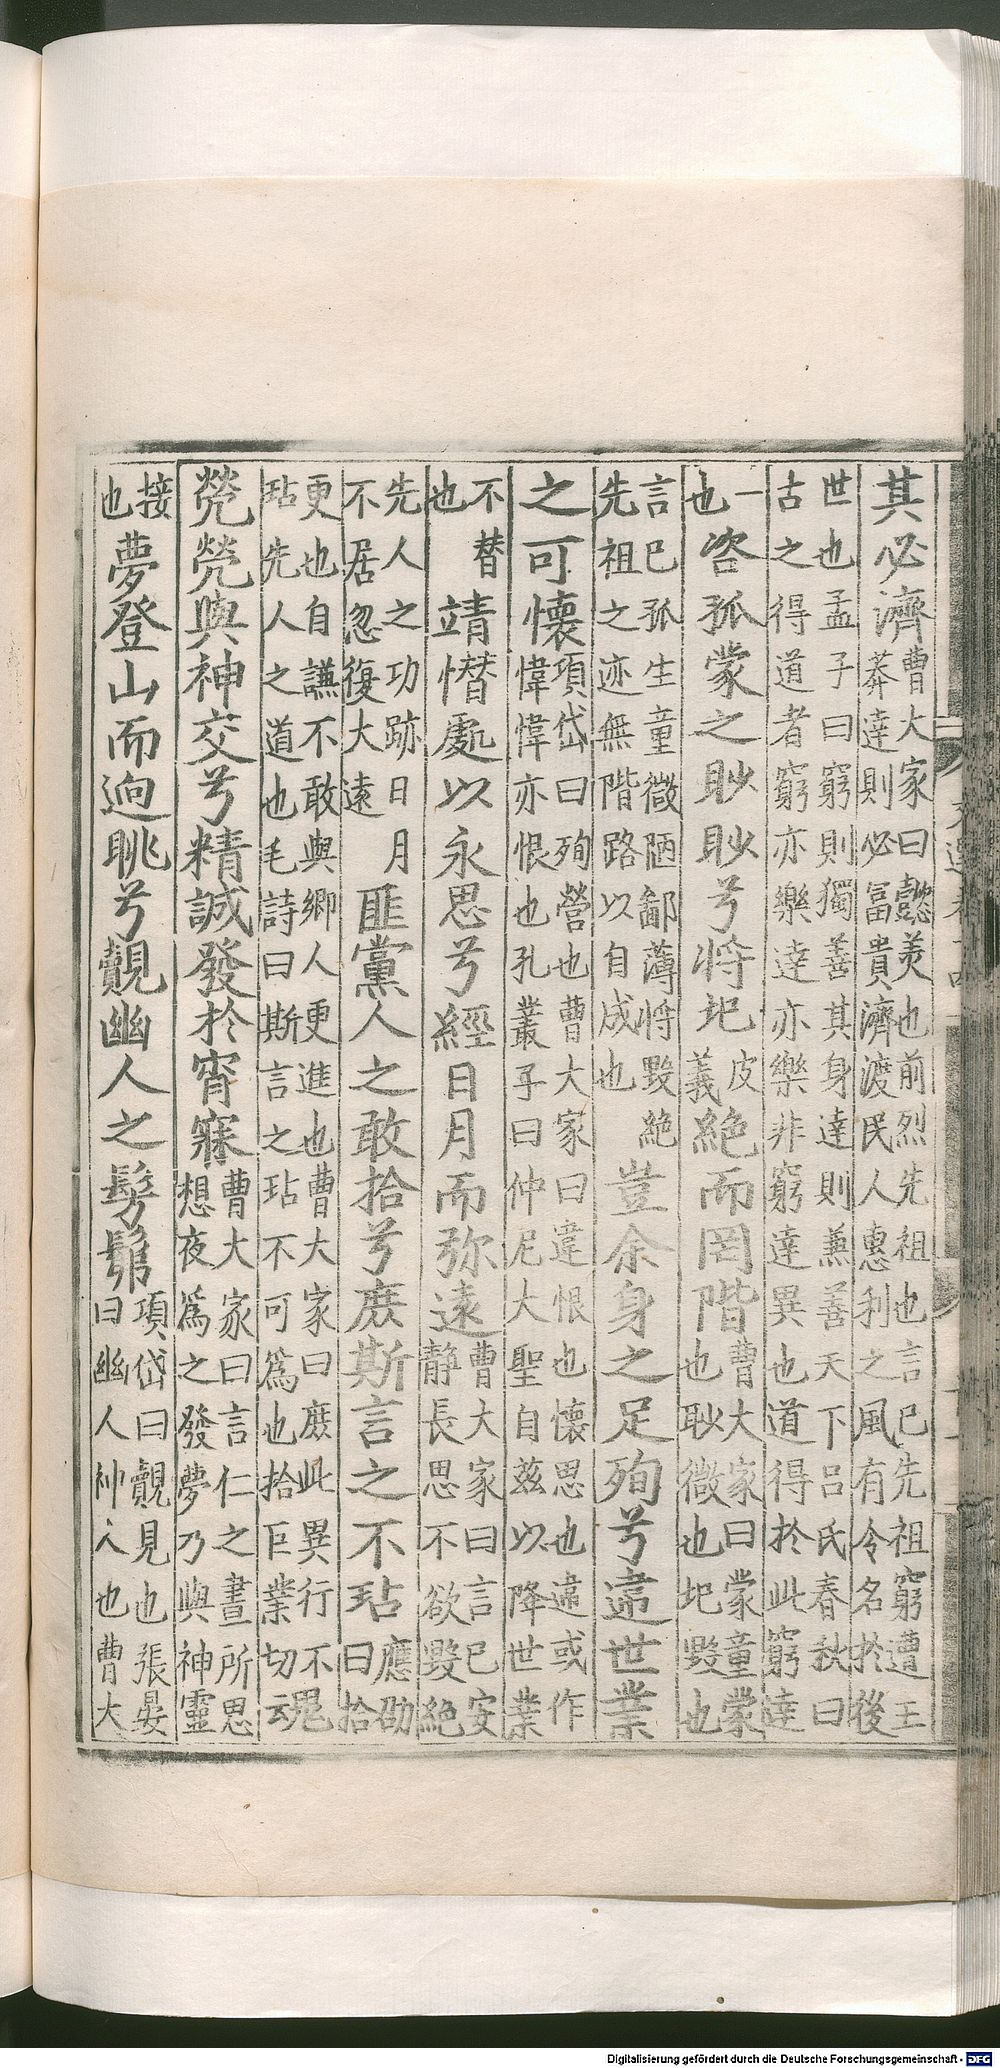 其必濟曹大家曰懿美也前烈先祖也言已先祖窮遭王
莽達則必冨貴濟渡民人惠利之風有令名於後
世也孟子曰窮則獨善其身達則兼善天下呂氏春秋曰
古之得道者窮亦樂達亦樂非窮達異也道得於此窮達
一
也咨孤蒙之眇眇兮将圮皮
義絶而罔階曹大家曰蒙童蒙
也眇微也圮毀也
言已孤生童微陋鄙薄将毀絶
先祖之迹無階路以自成也豈余身之足殉兮違世業
之可懷項岱曰殉營也曹大家曰違恨也懷思也違或作
愇愇亦恨也孔叢子曰仲尼大聖自兹以降世業
不替
也靖潛處以永思兮經日月而弥遠曹大家曰言已安
靜長思不欲毀絶
先人之功跡日月
不居忽復大遠匪黨人之敢拾兮庶斯言之不玷應劭
曰拾
更也自謙不敢與鄉人更進也曹大家曰庶此異行不
玷先人之道也毛詩曰斯言之玷不可為也拾巨業切
焭焭與神交兮精誠發於宵寐曹大家曰言仁之晝所思
想夜為之發夢乃與神靈
接
也夢登山而逈眺兮覿幽人之髣髴項岱曰覿見也張晏
曰幽人神人也曹大
Digitalisierung gefördert durch die Deutsche Forschungsgemeinschaft - DFG